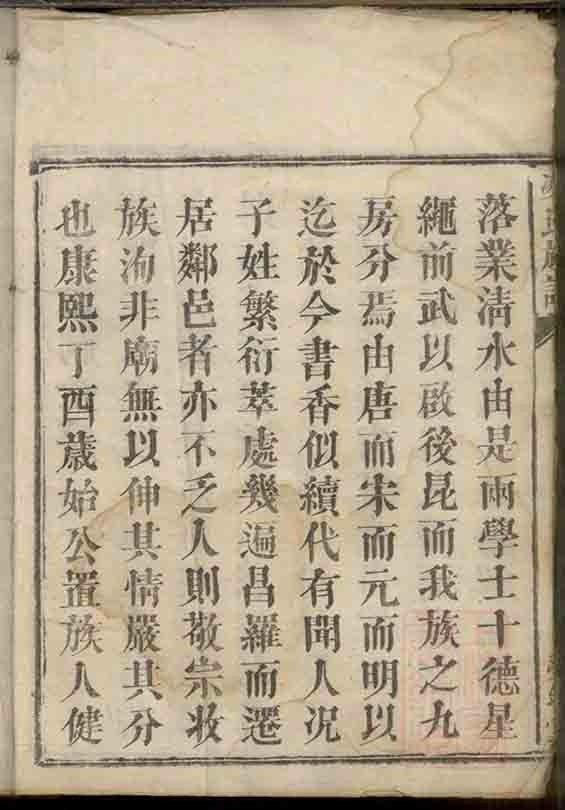 落業清水由是兩學士十德星
繩前武以啟後昆而我族之九
房分焉由唐而宋而元而明以
迄於今書香似續代有聞人況
子姓繁衍萃處幾遍昌羅而遷
居鄰邑者亦不乏人則敬宗收
族洵非廟無以伸其情嚴其分
也康熙丁酉歲始公置族人健